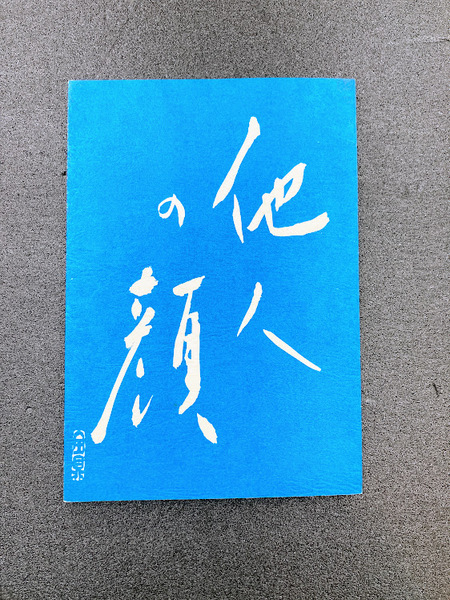 他人
の顔